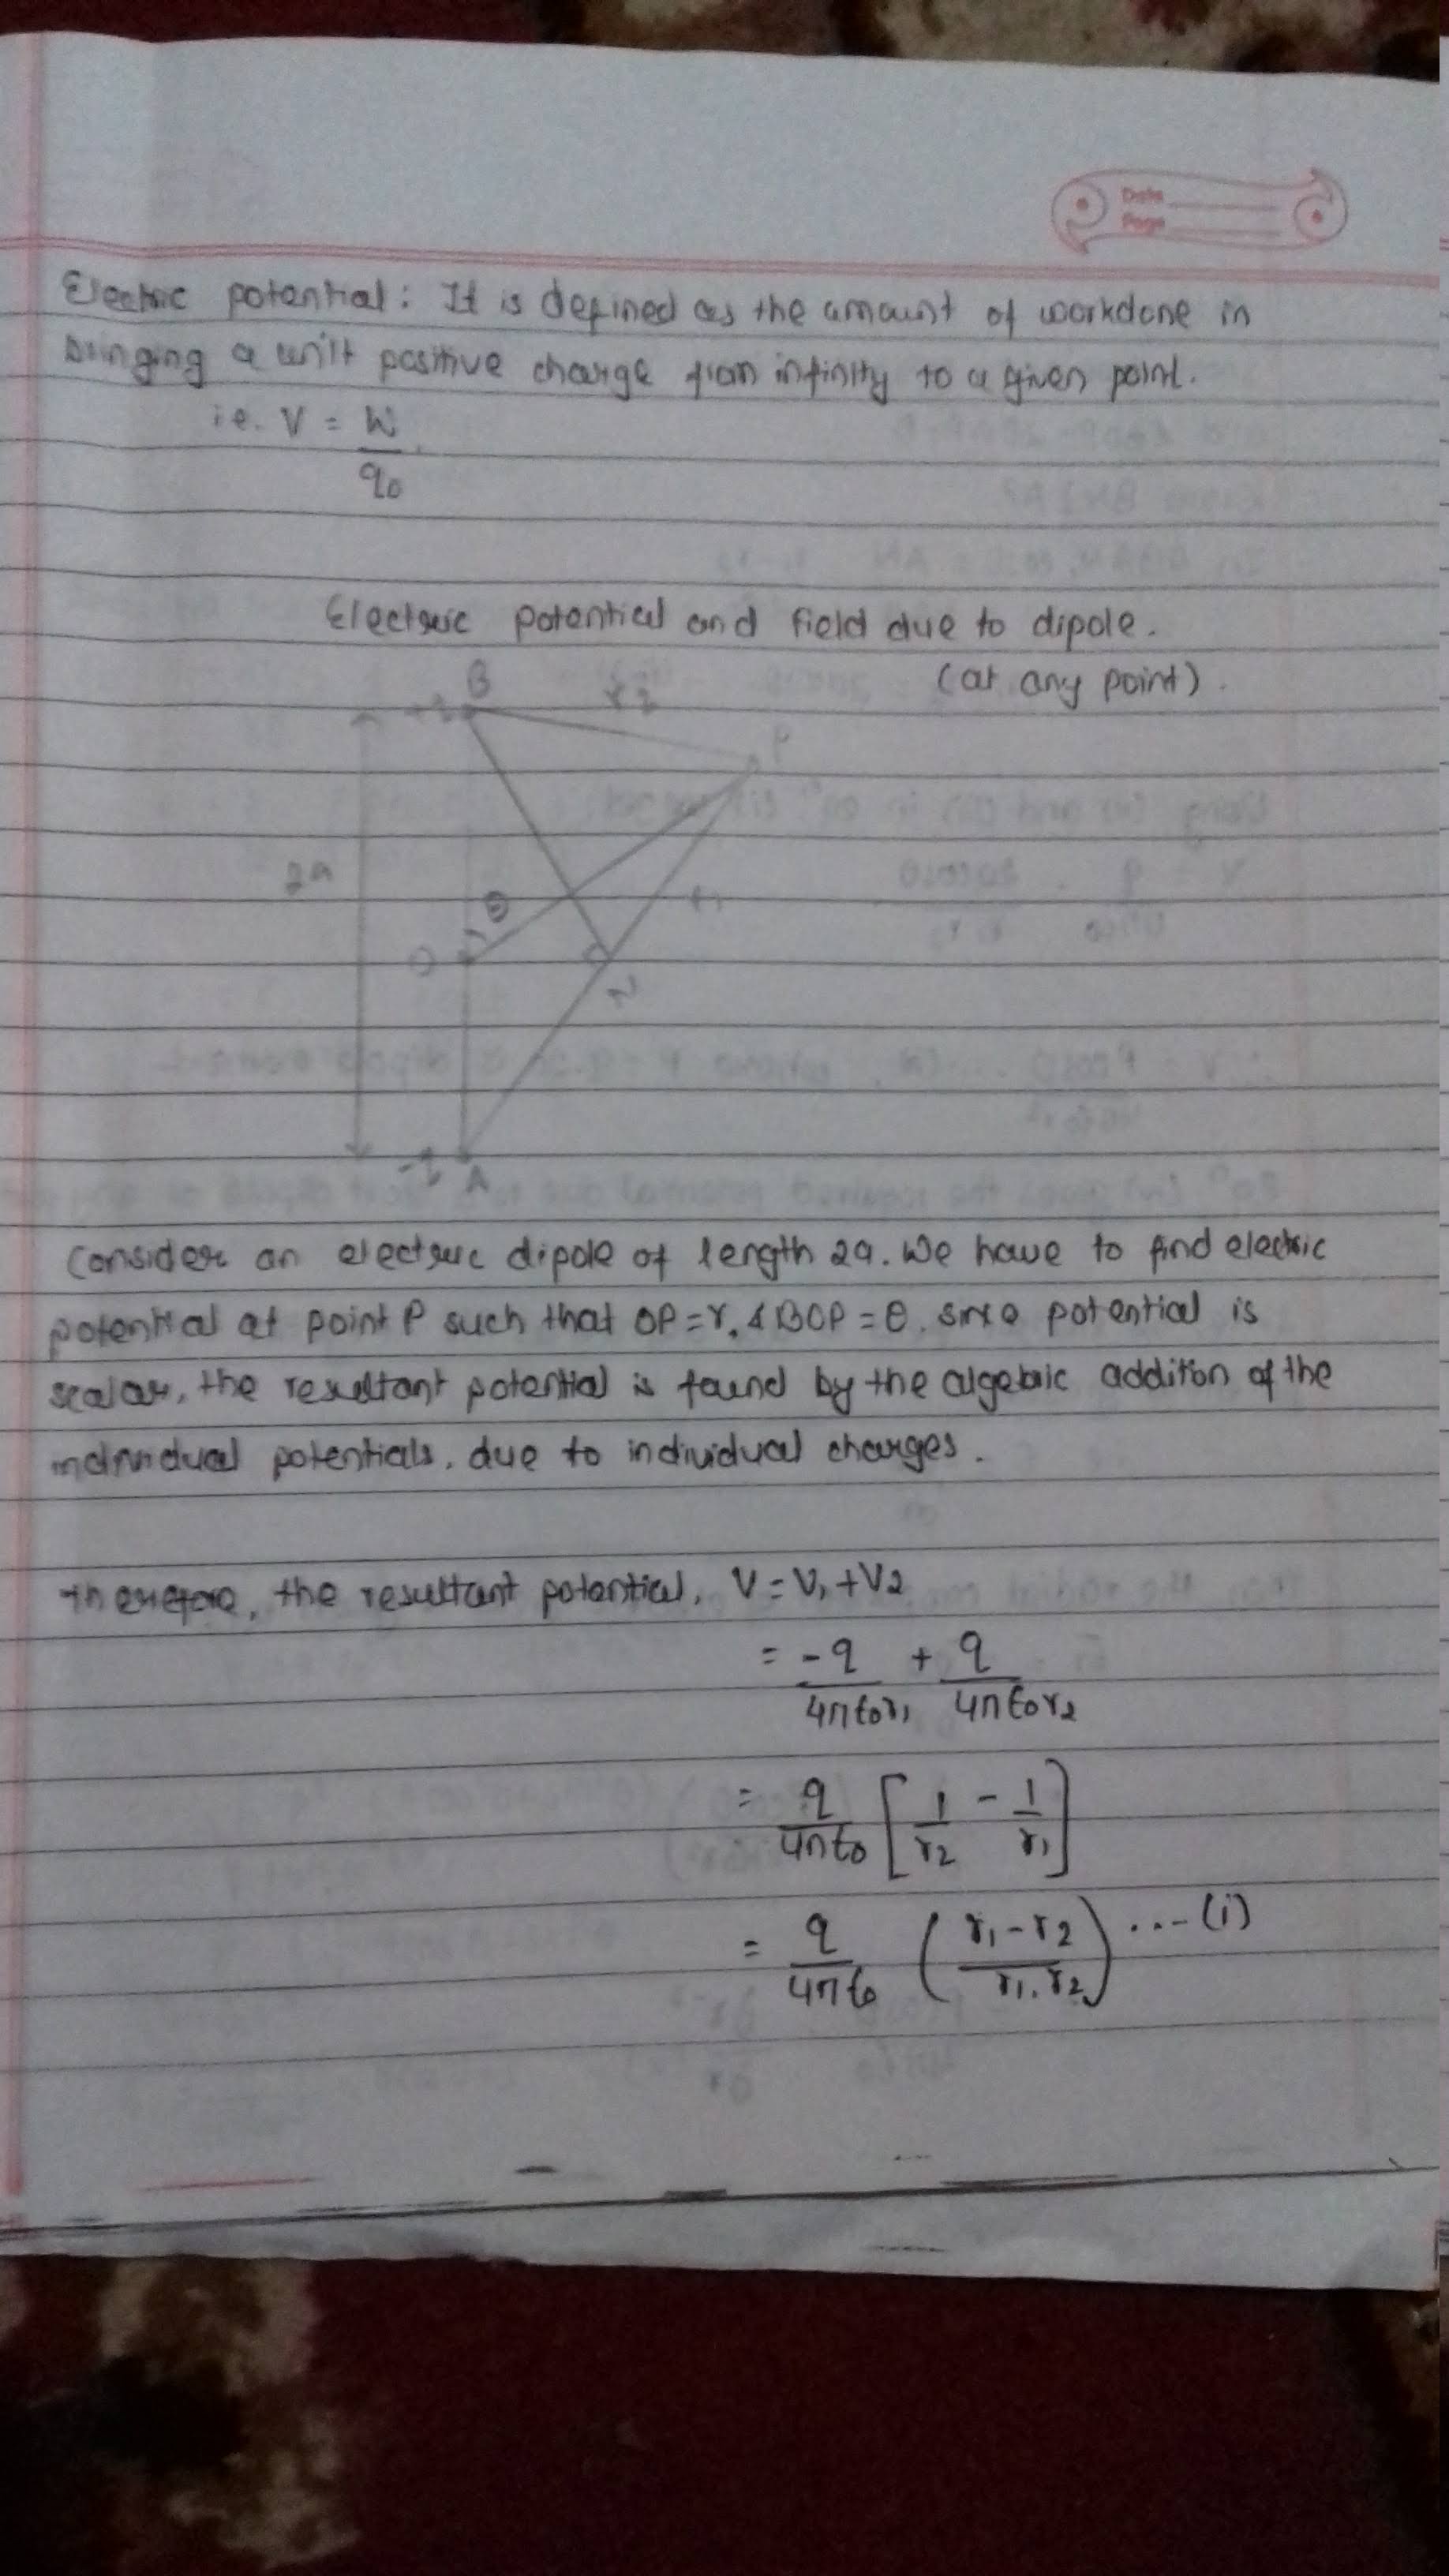 Date
Page
Electric potential: It is defined as the amount of workdone in
bringing a unit positive charge from infinity to a given point.
i.e. V = W
q0
Electric potential and field due to dipole.
(at any point).
+q B r2
P
2a
θ r1
O
N
-q A
Consider an electric dipole of length 2a. We have to find electric
potential at point P such that OP = r, ∠BOP = θ. since potential is
scalar, the resultant potential is found by the algebaic addition of the
individual potentials, due to individual charges.
therefore, the resultant potential, V = V1 + V2
= -q + q
4πε0r1 4πε0r2
= q [ 1 - 1 ]
4πε0 r2 r1
= q ( r1 - r2 ) ...(i)
4πε0 r1.r2